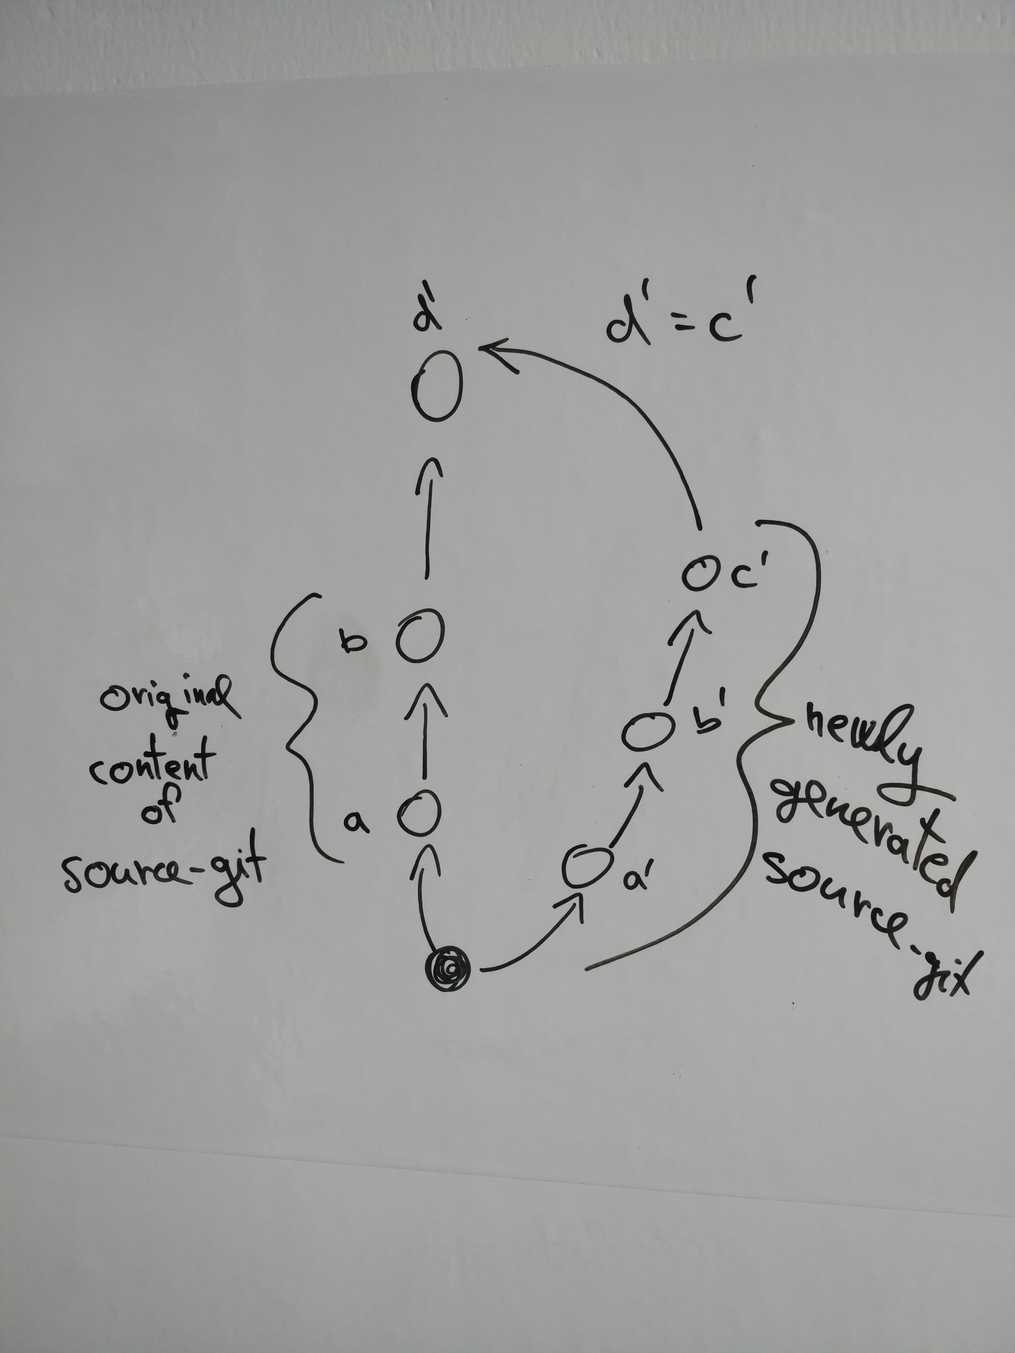 d'
d' = c'
c'
b
b'
original
content
of
source-git
a
a'
newly
generated
source-git